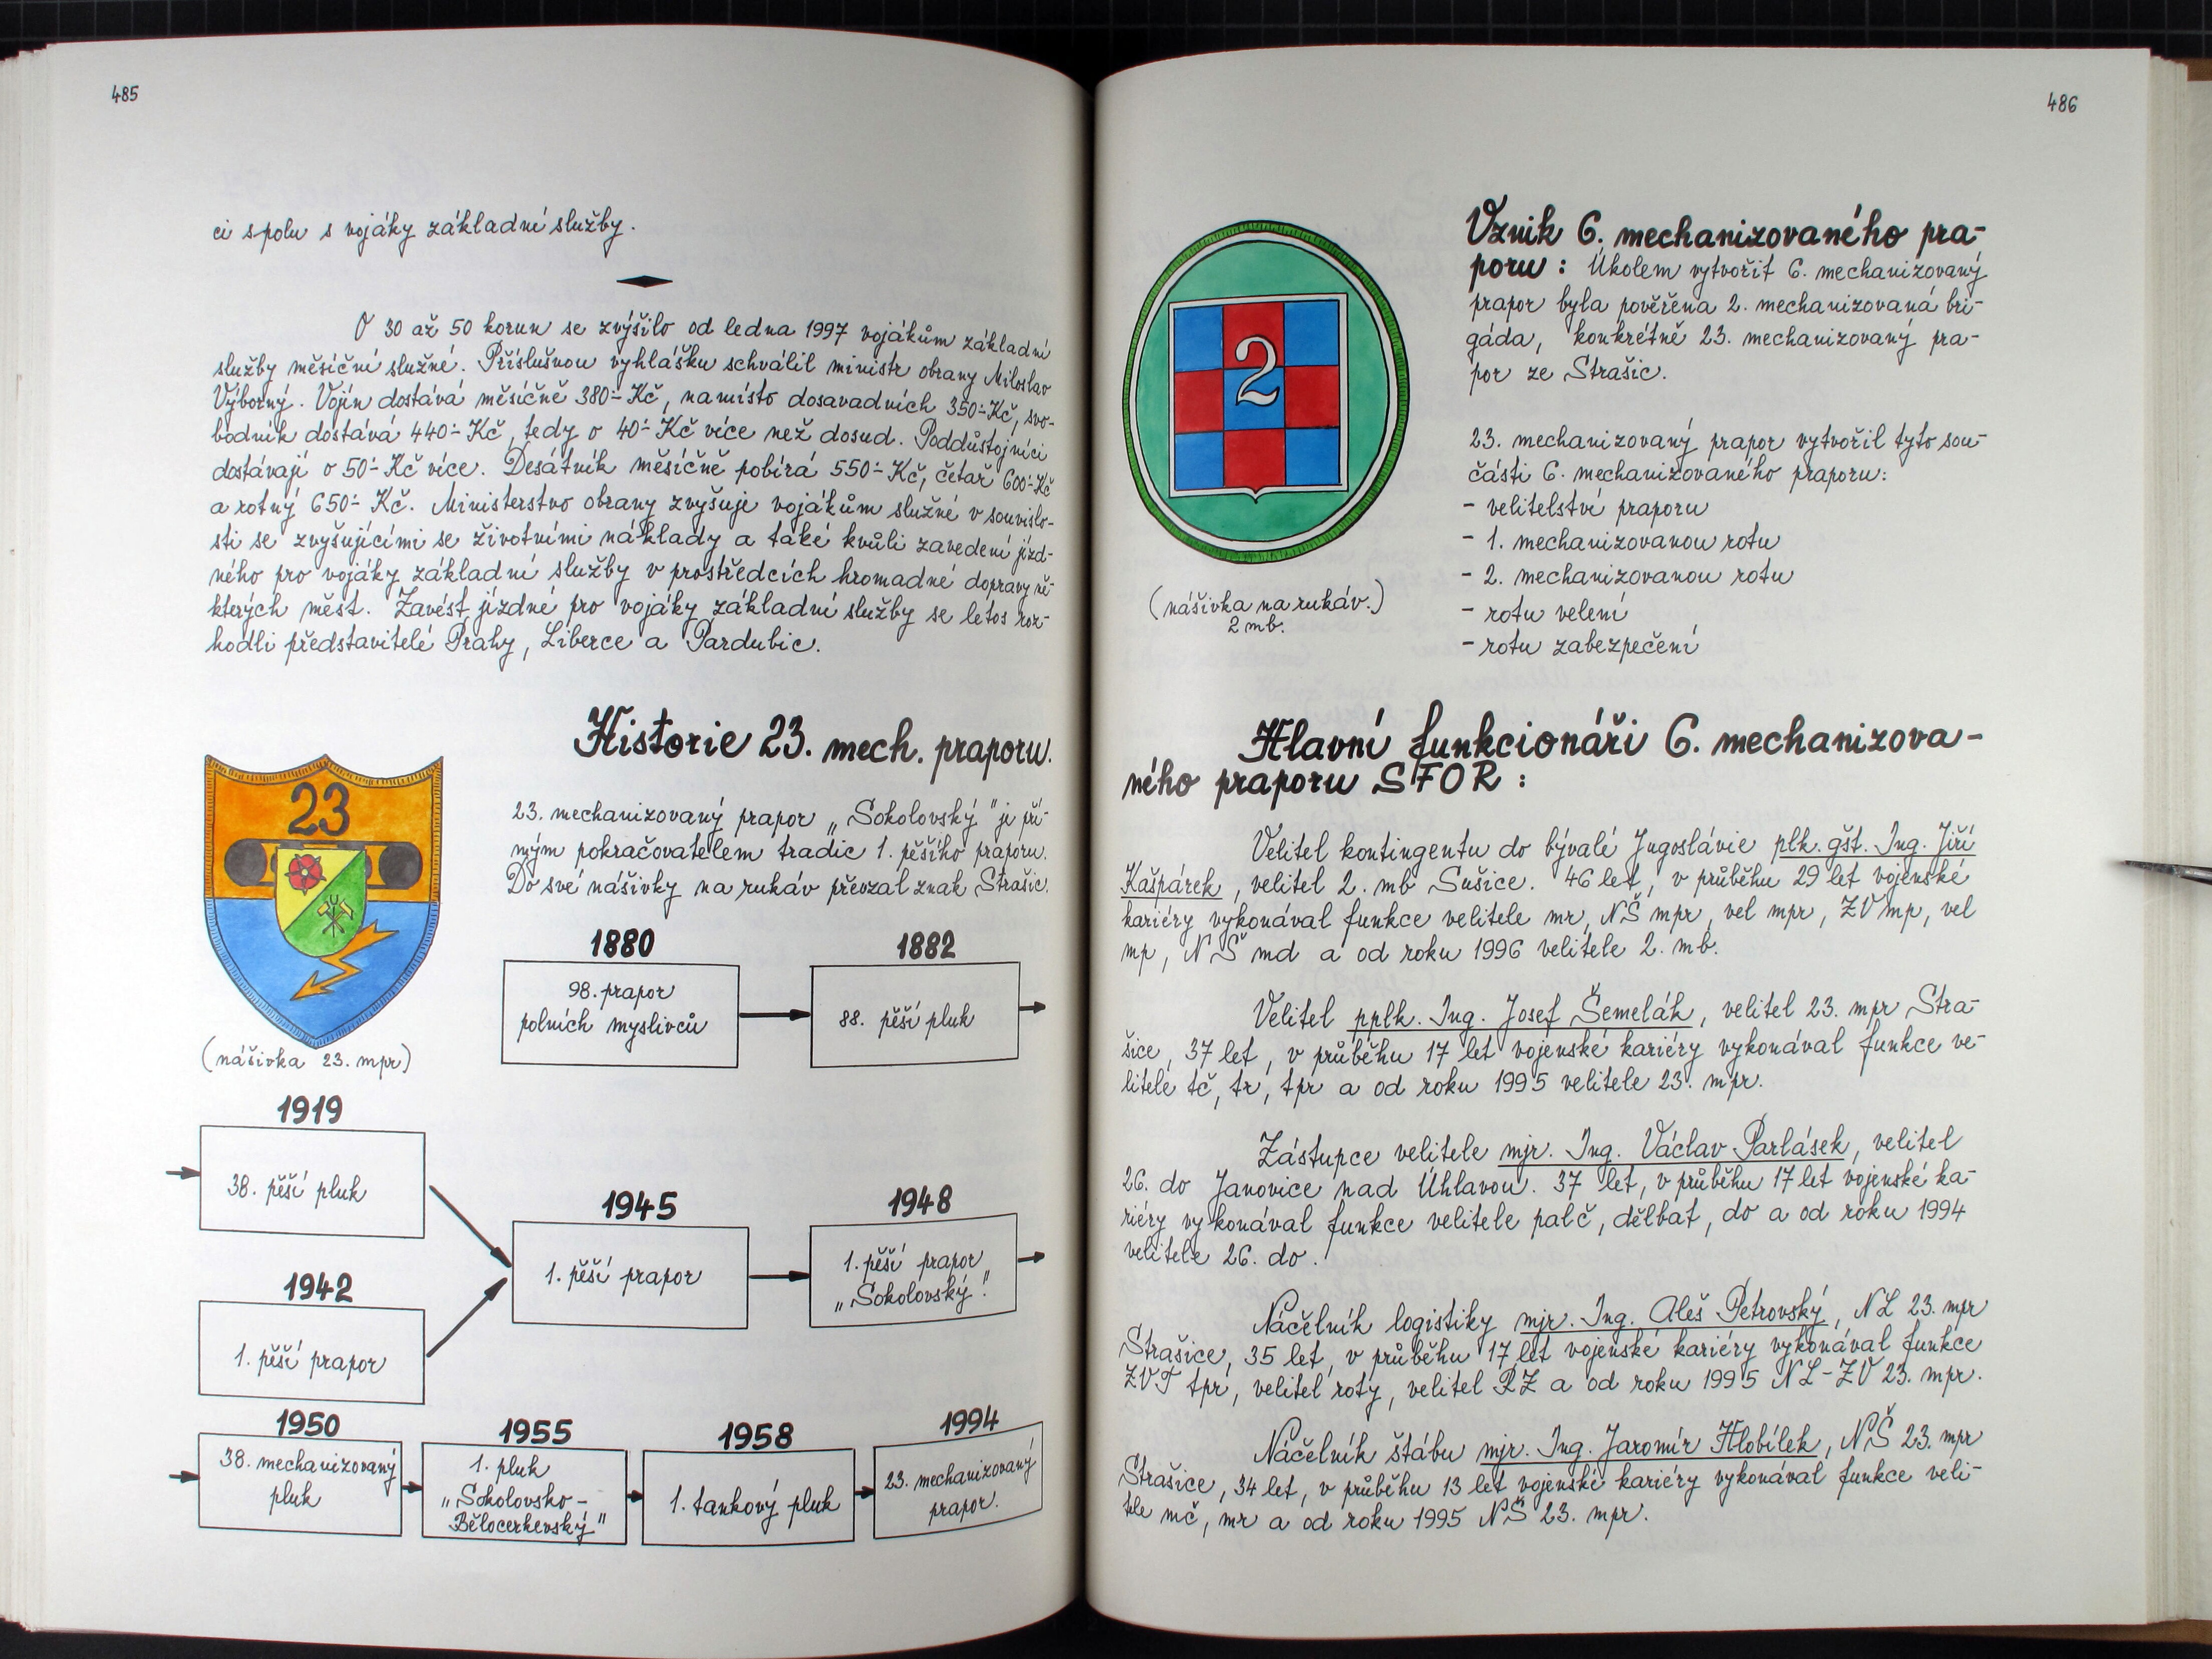 485
ci spolu s vojáky základní služby.
O 30 až 50 korun se zvýšilo od ledna 1997 vojákům základní
služby měsíční služné. Příslušnou vyhlášku schválil ministr obrany Miloslav
Výborný. Vojín dostává měsíčně 380.- Kč, namísto dosavadních 350.- Kč, svo-
bodník dostává 440.- Kč, tedy o 40.- Kč více než dosud. Poddůstojníci
dostávají o 50.- Kč více. Desátník měsíčně pobírá 550.- Kč, četař 600.- Kč
a rotný 650.- Kč. Ministerstvo obrany zvyšuje vojákům služné v souvislo-
sti se zvyšujícími se životními náklady a také kvůli zavedení jízd-
ného pro vojáky základní služby v prostředcích hromadné dopravy ně-
kterých měst. Zavést jízdné pro vojáky základní služby se letos roz-
hodli představitelé Prahy, Liberce a Pardubic.
Historie 23. mech. praporu.
23
23. mechanizovaný prapor „Sokolovský" je pří-
mým pokračovatelem tradic 1. pěšího praporu.
Do své nášivky na rukáv převzal znak Strašic.
(nášivka 23. mpr)
1880
98. prapor
polních myslivců
1882
88. pěší pluk
1919
38. pěší pluk
1942
1. pěší prapor
1945
1. pěší prapor
1948
1. pěší prapor
„Sokolovský"
1950
38. mechanizovaný
pluk
1955
1. pluk
„Sokolovsko-
Bělocerkevský"
1958
1. tankový pluk
1994
23. mechanizovaný
prapor.
486
2
(nášivka na rukáv.)
2 mb.
Vznik 6. mechanizovaného pra-
poru: Úkolem vytvořit 6. mechanizovaný
prapor byla pověřena 2. mechanizovaná bri-
gáda, konkrétně 23. mechanizovaný pra-
por ze Strašic.
23. mechanizovaný prapor vytvořil tyto sou-
části 6. mechanizovaného praporu:
- velitelství praporu
- 1. mechanizovanou rotu
- 2. mechanizovanou rotu
- rotu velení
- rotu zabezpečení
Hlavní funkcionáři 6. mechanizova-
ného praporu SFOR:
Velitel kontingentu do bývalé Jugoslávie plk. gšt. Ing. Jiří
Kašpárek, velitel 2. mb Sušice. 46 let, v průběhu 29 let vojenské
kariéry vykonával funkce velitele mr, NŠ mpr, vel mpr, ZV mp, vel
mp, NŠ md a od roku 1996 velitele 2. mb.
Velitel pplk. Ing. Josef Šemelák, velitel 23. mpr Stra-
šice, 37 let, v průběhu 17 let vojenské kariéry vykonával funkce ve-
litele tč, tr, tpr a od roku 1995 velitele 23. mpr.
Zástupce velitele mjr. Ing. Václav Parlásek, velitel
26. do Janovice nad Úhlavou. 37 let, v průběhu 17 let vojenské ka-
riéry vykonával funkce velitele palč, dělbat, do a od roku 1994
velitele 26. do.
Náčelník logistiky mjr. Ing. Aleš Petrovský, NL 23. mpr
Strašice, 35 let, v průběhu 17 let vojenské kariéry vykonával funkce
ZVT tpr, velitel roty, velitel RZ a od roku 1995 NL-ZV 23. mpr.
Náčelník štábu mjr. Ing. Jaromír Hlobílek, NŠ 23. mpr
Strašice, 34 let, v průběhu 13 let vojenské kariéry vykonával funkce veli-
tele mč, mr a od roku 1995 NŠ 23. mpr.